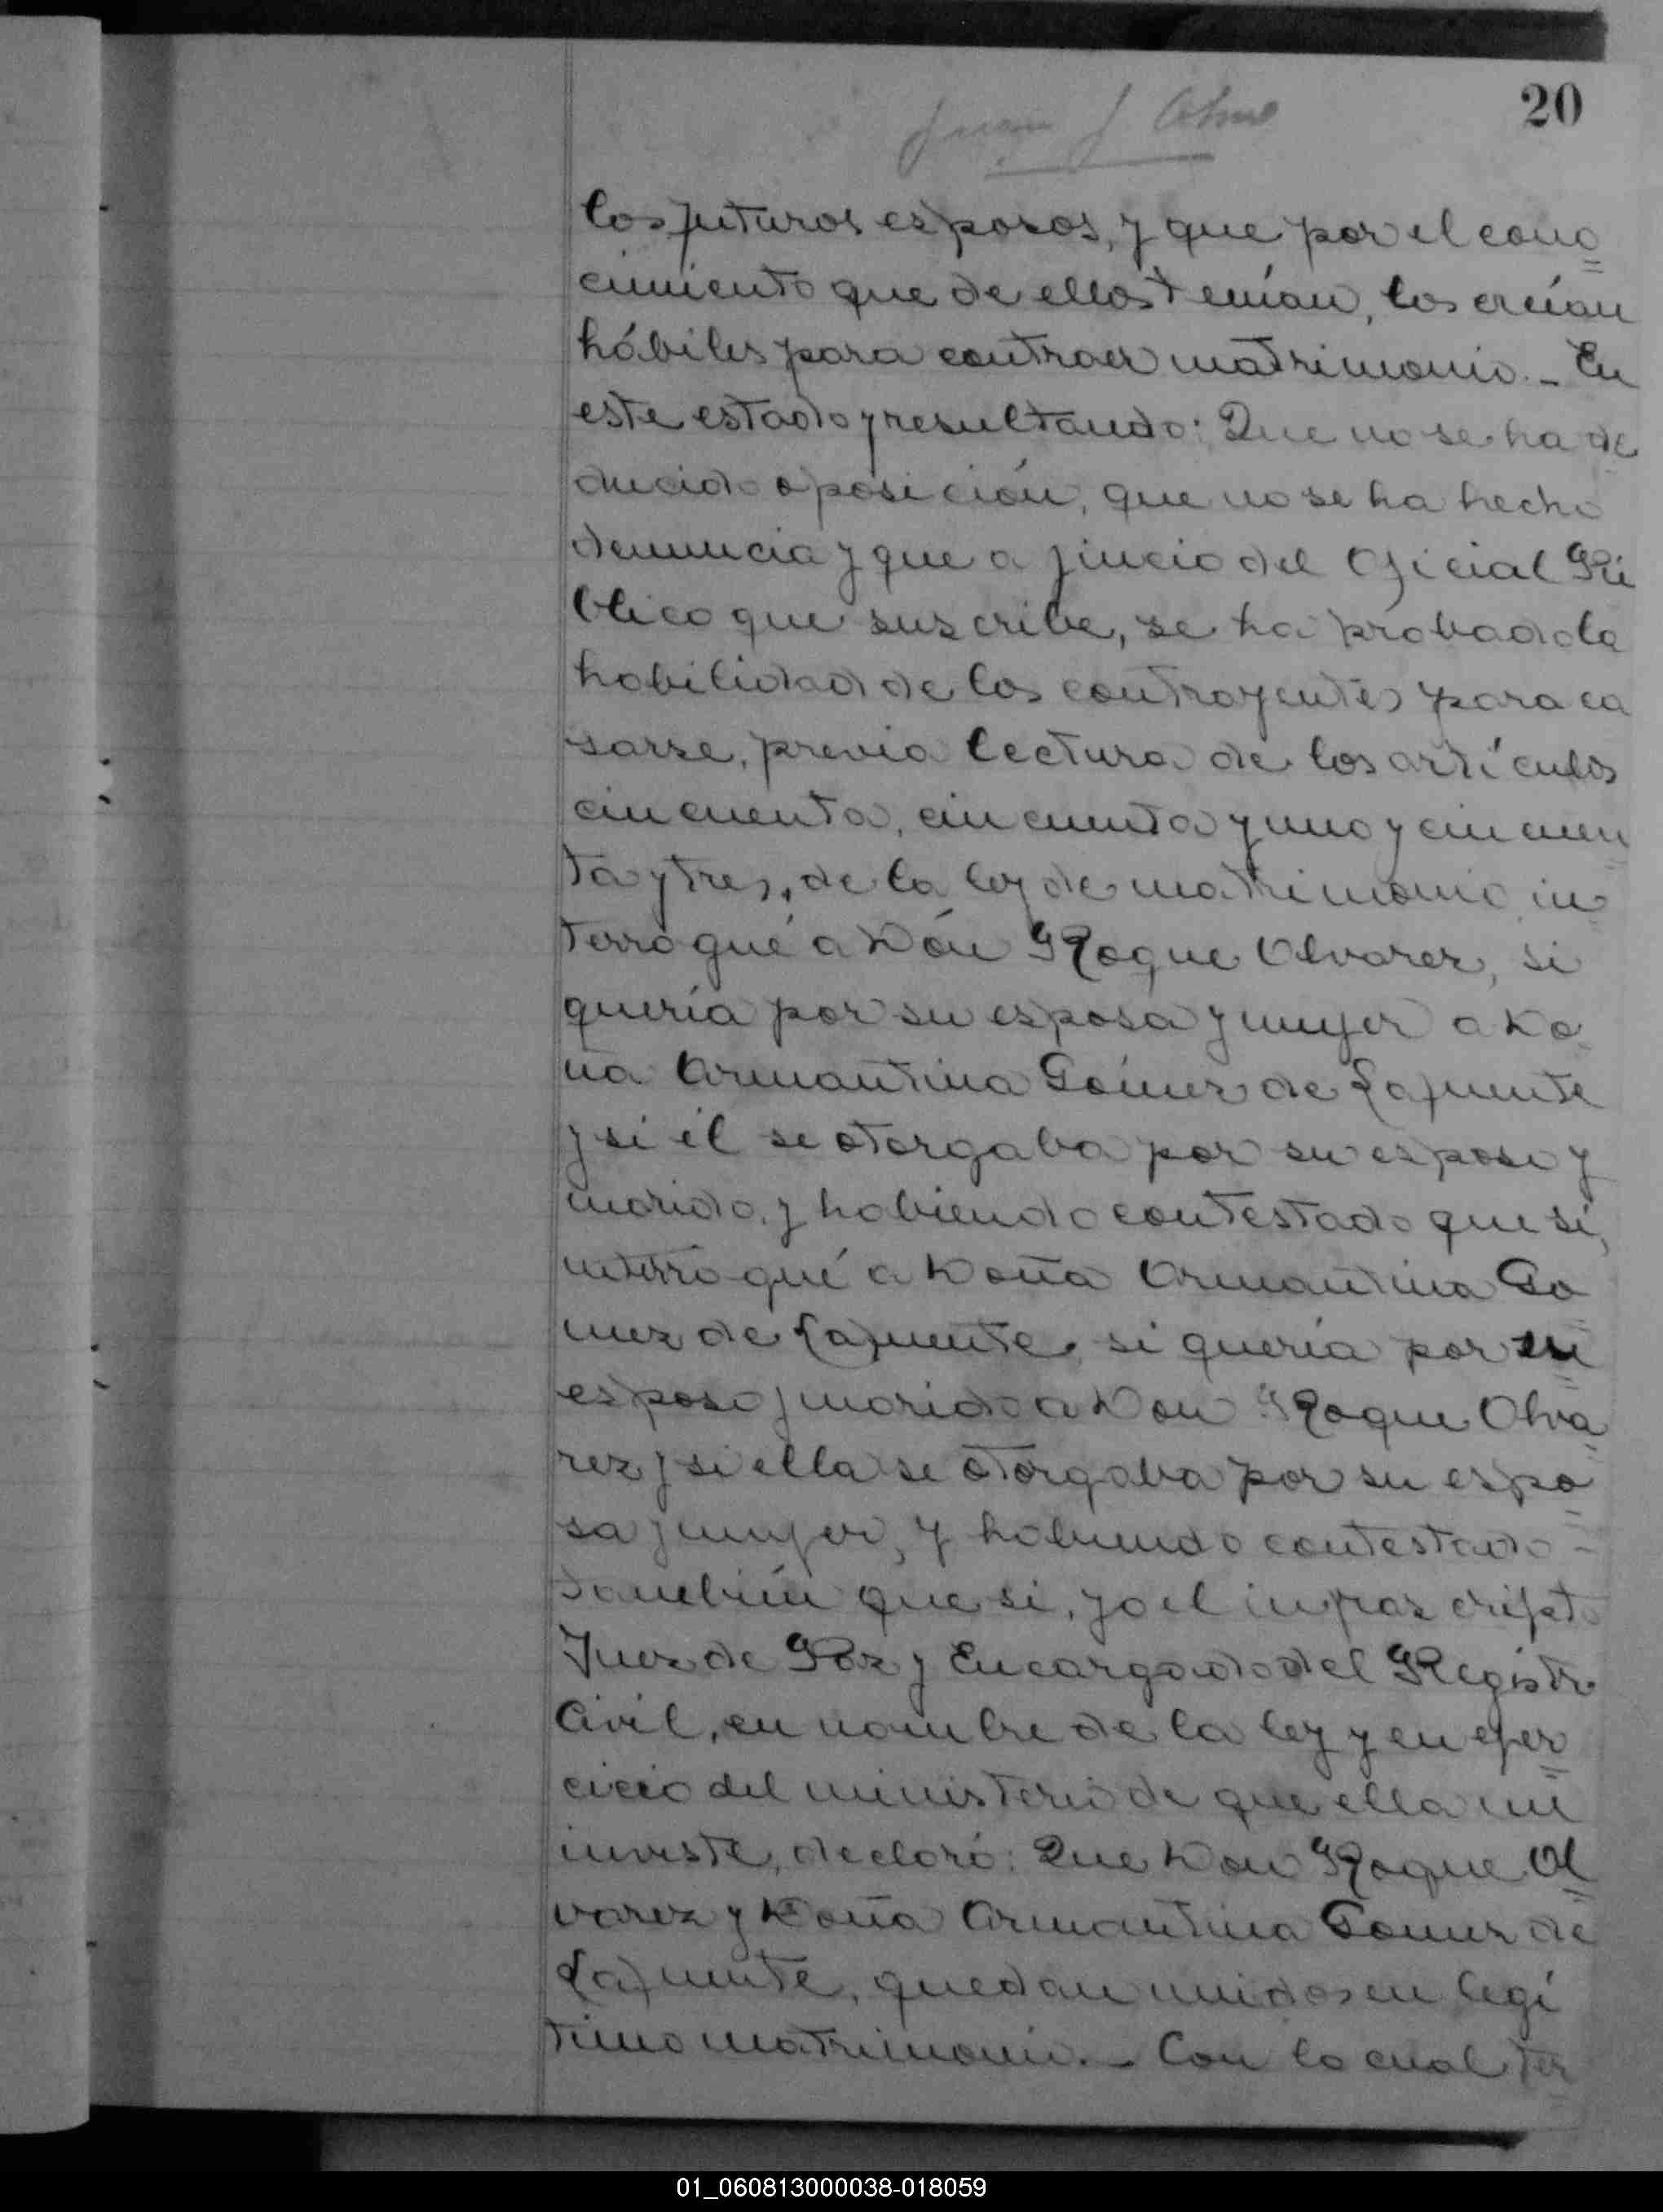 20
Juan J
los futuros esposos, y que por el cono
cimiento que de ellos tenían, los creían
hábiles para contraer matrimonio. - En
este estado y resultando: Que no se ha de
ducido oposición, que no se ha hecho
denuncia y que a juicio del Oficial Pú
blico que suscribe, se ha probado la
habilidad de los contrayentes para ca
sarse, previa lectura de los artículos
cincuenta, cincuenta y uno y cincuen
ta y tres, de la ley de matrimonio in
terrogué a Dón Roque Alvarez, si
quería por su esposa y mujer a Do
ña Armantina Gómez de Lafuente
y si él se otorgaba por su esposo y
marido, y habiendo contestado que sí,
interrogué a Doña Armantina Go
mez de Lafuente, si quería por su
esposo y marido a Don Roque Alva
rez y si ella se otorgaba por su espo
sa y mujer, y habiendo contestado -
también que si, yo el infrascripto
Juez de Paz y Encargado del Registro
Civil, en nombre de la ley y en ejer
cicio del ministerio de que ella me
inviste, declaró: Que Don Roque Al
varez y Doña Armantina Gomez de
Lafuente, quedan unidos en legí
timo matrimonio. - Con lo cual ter
01_060813000038-018059